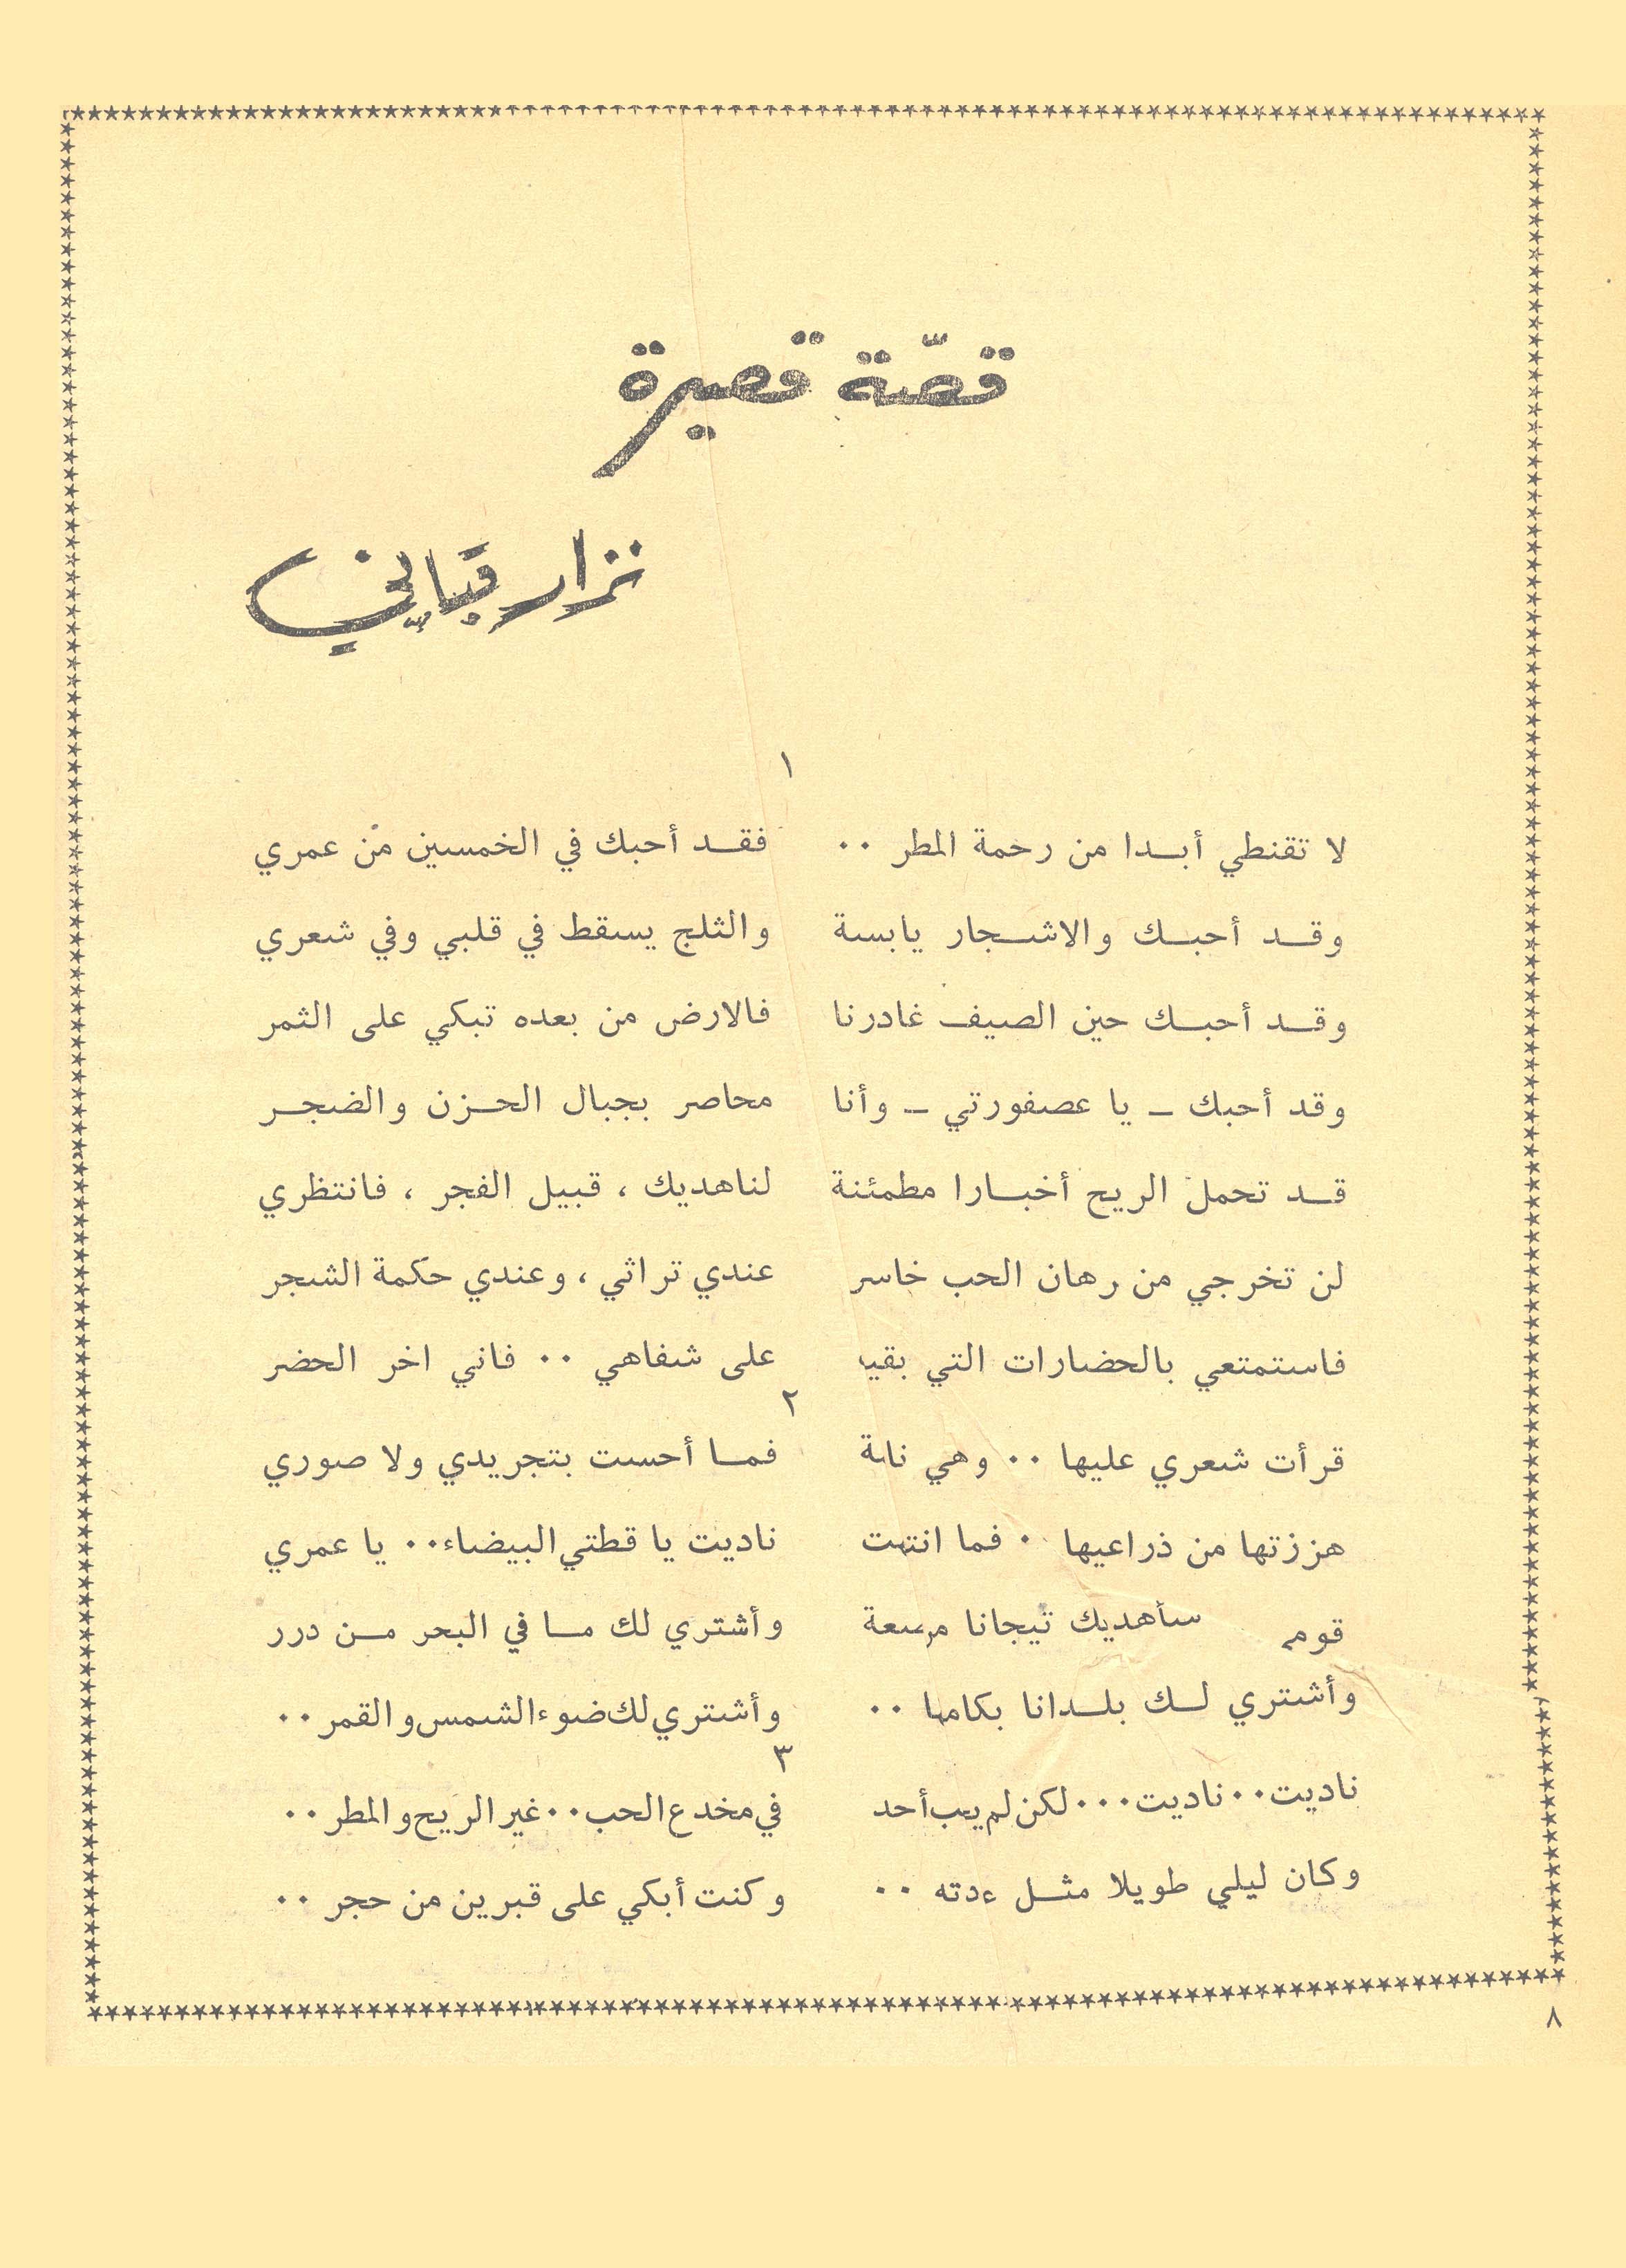 قصّة قصيرة
نزار قباني
١
لا تقنطي أبدا من رحمة المطر ٠٠ فقد أحبك في الخمسين من عمري
وقد أحبك والاشجار يابسة والثلج يسقط في قلبي وفي شعري
وقد أحبك حين الصيف غادرنا فالارض من بعده تبكي على الثمر
وقد أحبك – يا عصفورتي – وأنا محاصر بجبال الحزن والضجر
قد تحمل الريح أخبارا مطمئنة لناهديك ، قبيل الفجر ، فانتظري
لن تخرجي من رهان الحب خاسر عندي تراثي ، وعندي حكمة الشجر
فاستمتعي بالحضارات التي بقيـ على شفاهي ٠٠ فاني اخر الحضر
٢
قرأت شعري عليها ٠٠ وهي فما أحست بتجريدي ولا صوري
هززتها من ذراعيها ٠ فما ناديت يا قطتي البيضاء٠٠ يا عمري
سأهديك تيجانا وأشتري لك ما في البحر من درر
وأشتري لك بلدانا بكاملها ٠٠ وأشتري لك ضوء الشمس والقمر ٠٠
٣
ناديت ٠٠ ناديت ٠٠٠ لكن لم أحد في مخدع الحب ٠٠ غير الريح والمطر ٠٠
وكان ليلي طويلا مثل ٠٠ وكنت أبكي على قبرين من حجر ٠٠
٨